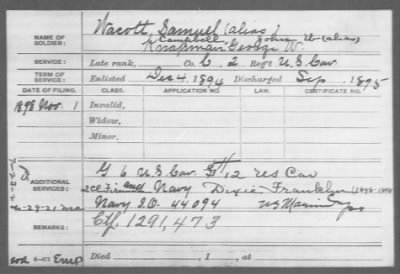 NAME OF SOLDIER: Wacott Samuel (alias)
Campbell John W (alias)
Knapman George W.
SERVICE: Late rank, Co. C, 2 Reg't U.S. Cav.
TERM OF SERVICE: Enlisted Dec 4, 1894 Discharged Sep , 1895
DATE OF FILING. CLASS. APPLICATION NO. LAW. CERTIFICATE NO.
1898 Nov. 1 Invalid,
Widow,
Minor,
G 6 U.S. Cav. 12 U.S Cav
ADDITIONAL SERVICES: Navy Dixie Franklin
Navy S.O. 44094 US Marine
REMARKS: Ctf. 1291,473
Died , 1 , at